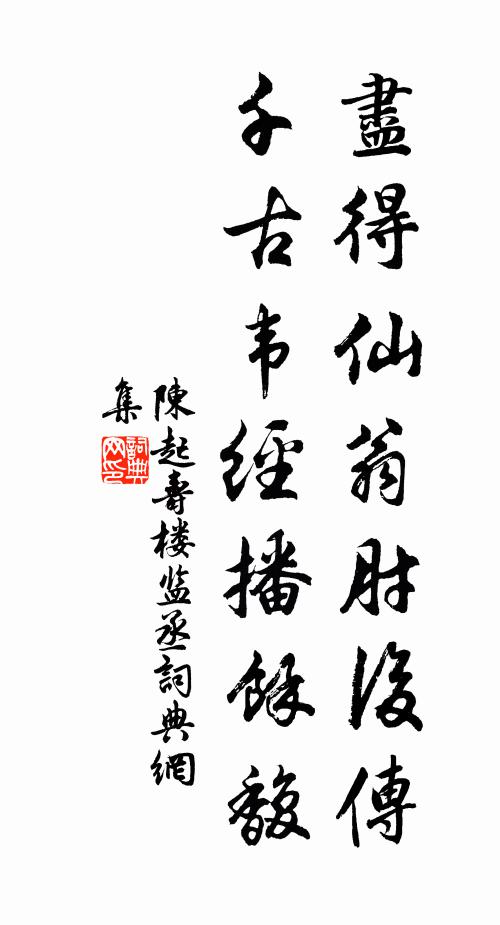 盡得仙翁肘後傳
千古韦經播餘馥
陳起壽楼监丞詞典網
集
詞典
网印